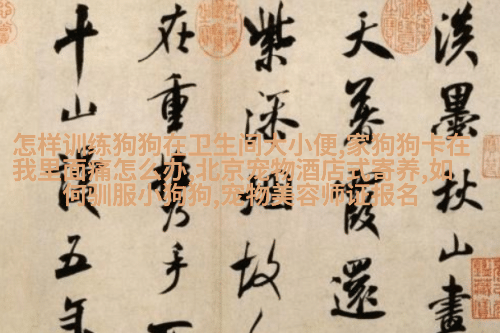 淡墨秋山畫
天暮霞還
紫深烟故
在重携手
十山淡五年
怎样训练狗狗在卫生间大小便,家狗狗卡在
我里面痛怎么办,北京宠物酒店式寄养,如
何驯服小狗狗,宠物美容师证报名